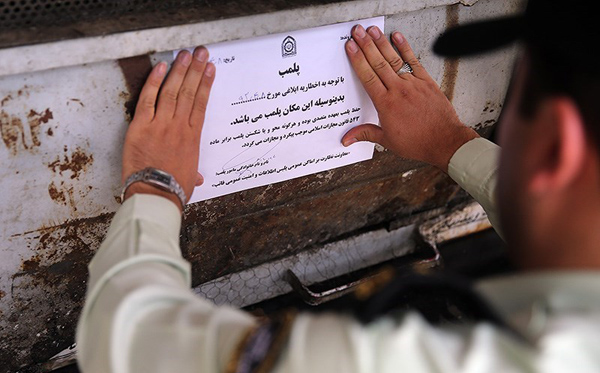 تاریخ:
پلمب
با توجه به اخطاریه ابلاغی مورخ
بدینوسیله این مکان پلمب می باشد.
حفظ پلمب بعهده متصدی بوده و هرگونه محو و یا شکستن پلمب برابر ماده
۵۴۳ قانون مجازات اسلامی موجب پیگرد و مجازات می گردد.
نام و نام خانوادگی مامور پلمب:
معاونت نظارت بر اماکن عمومی پلیس اطلاعات و امنیت عمومی فاتب